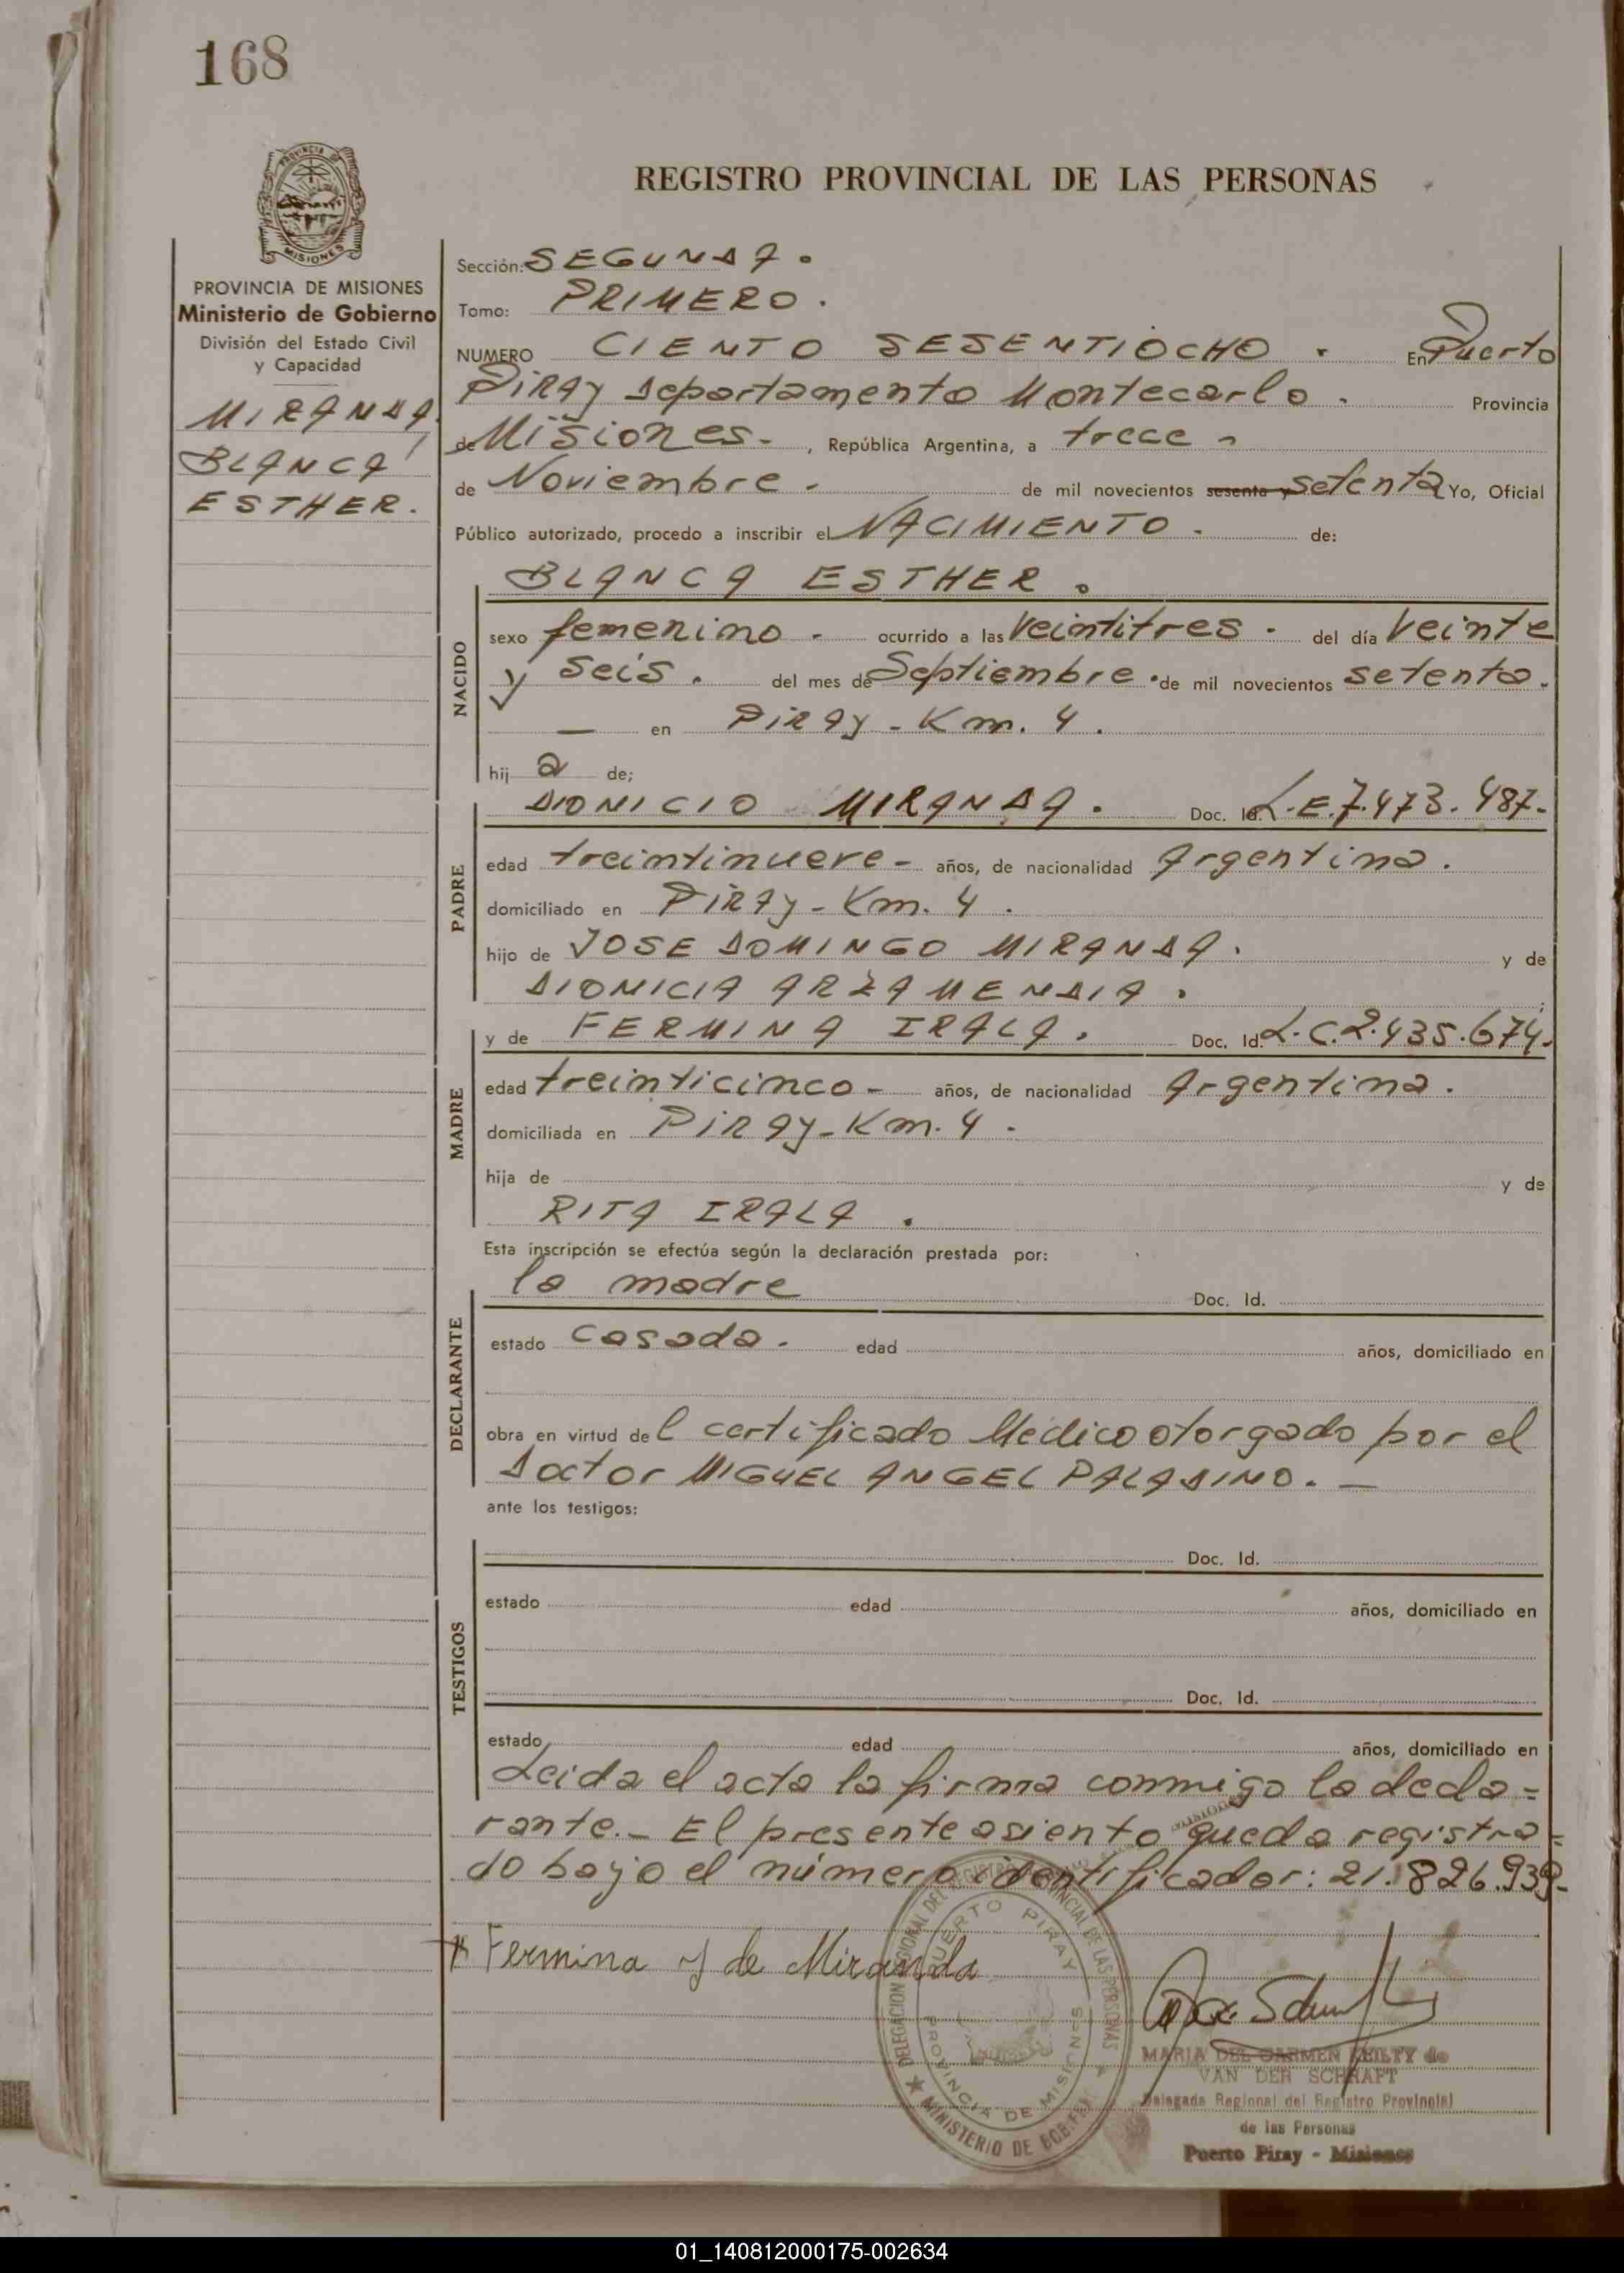 168
REGISTRO PROVINCIAL DE LAS PERSONAS
PROVINCIA DE MISIONES
Ministerio de Gobierno
División del Estado Civil
y Capacidad
MIRANDA,
BLANCA
ESTHER.
Sección: SEGUNDA.
Tomo: PRIMERO.
NUMERO CIENTO SESENTIOCHO. En Puerto
Piray Departamento Montecarlo. Provincia
de Misiones. , República Argentina, a trece
de Noviembre. de mil novecientos sesenta y setenta Yo, Oficial
Público autorizado, procedo a inscribir el NACIMIENTO. de:
BLANCA ESTHER.
NACIDO
sexo femenino. ocurrido a las veintitres. del día veinte
y seis. del mes de Septiembre. de mil novecientos setenta.
— en Piray-Km. 4.
hij a de;
PADRE
DIONICIO MIRANDA. Doc. Id. L.E.7.473.487.
edad treintinueve- años, de nacionalidad Argentina.
domiciliado en Piray-Km. 4.
hijo de JOSE DOMINGO MIRANDA. y de
DIONICIA ARZAMENDIA.
MADRE
y de FERMINA IRALA. Doc. Id. L.C.2.435.674.
edad treinticinco- años, de nacionalidad Argentina.
domiciliada en Piray-Km. 4.
hija de y de
RITA IRALA.
Esta inscripción se efectúa según la declaración prestada por:
DECLARANTE
la madre Doc. Id.
estado casada. edad años, domiciliado en
obra en virtud del certificado Médico otorgado por el
Doctor MIGUEL ANGEL PALADINO. —
ante los testigos:
TESTIGOS
Doc. Id.
estado edad años, domiciliado en
Doc. Id.
estado edad años, domiciliado en
Leida el acta la firma conmigo la decla=
rante.- El presente asiento queda registra=
do bajo el número identificador: 21.826.939-
Fermina Y de Miranda
DELEGACION REGIONAL DEL REGISTRO PROVINCIAL DE LAS PERSONAS
PUERTO PIRAY
PROVINCIA DE MISIONES
MINISTERIO DE GOB.
MARIA DEL CARMEN de
VAN DER SCHRAFT
Delegada Regional del Registro Provincial
de las Personas
Puerto Piray - Misiones
01_140812000175-002634